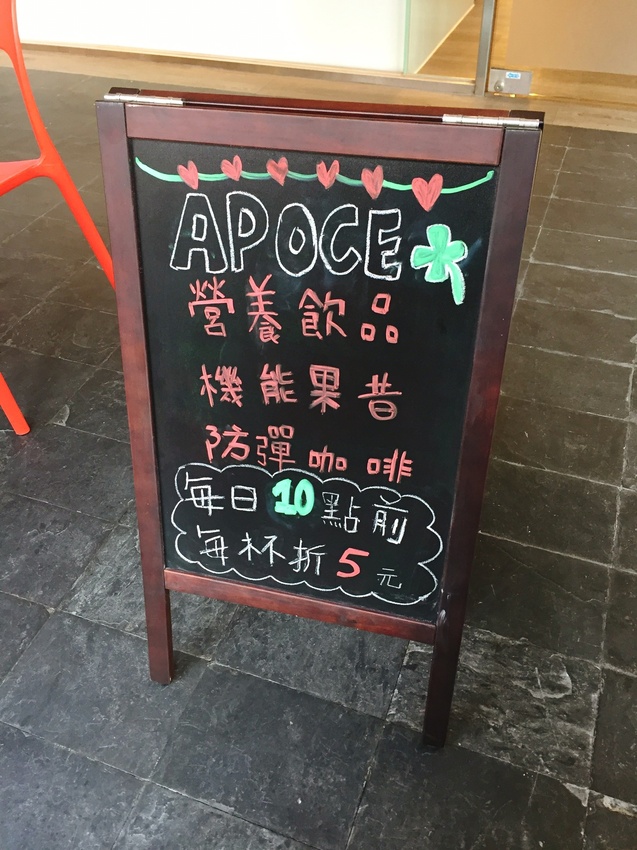 APOCE
營養飲品
機能果昔
防彈咖啡
每日10點前
每杯折5元